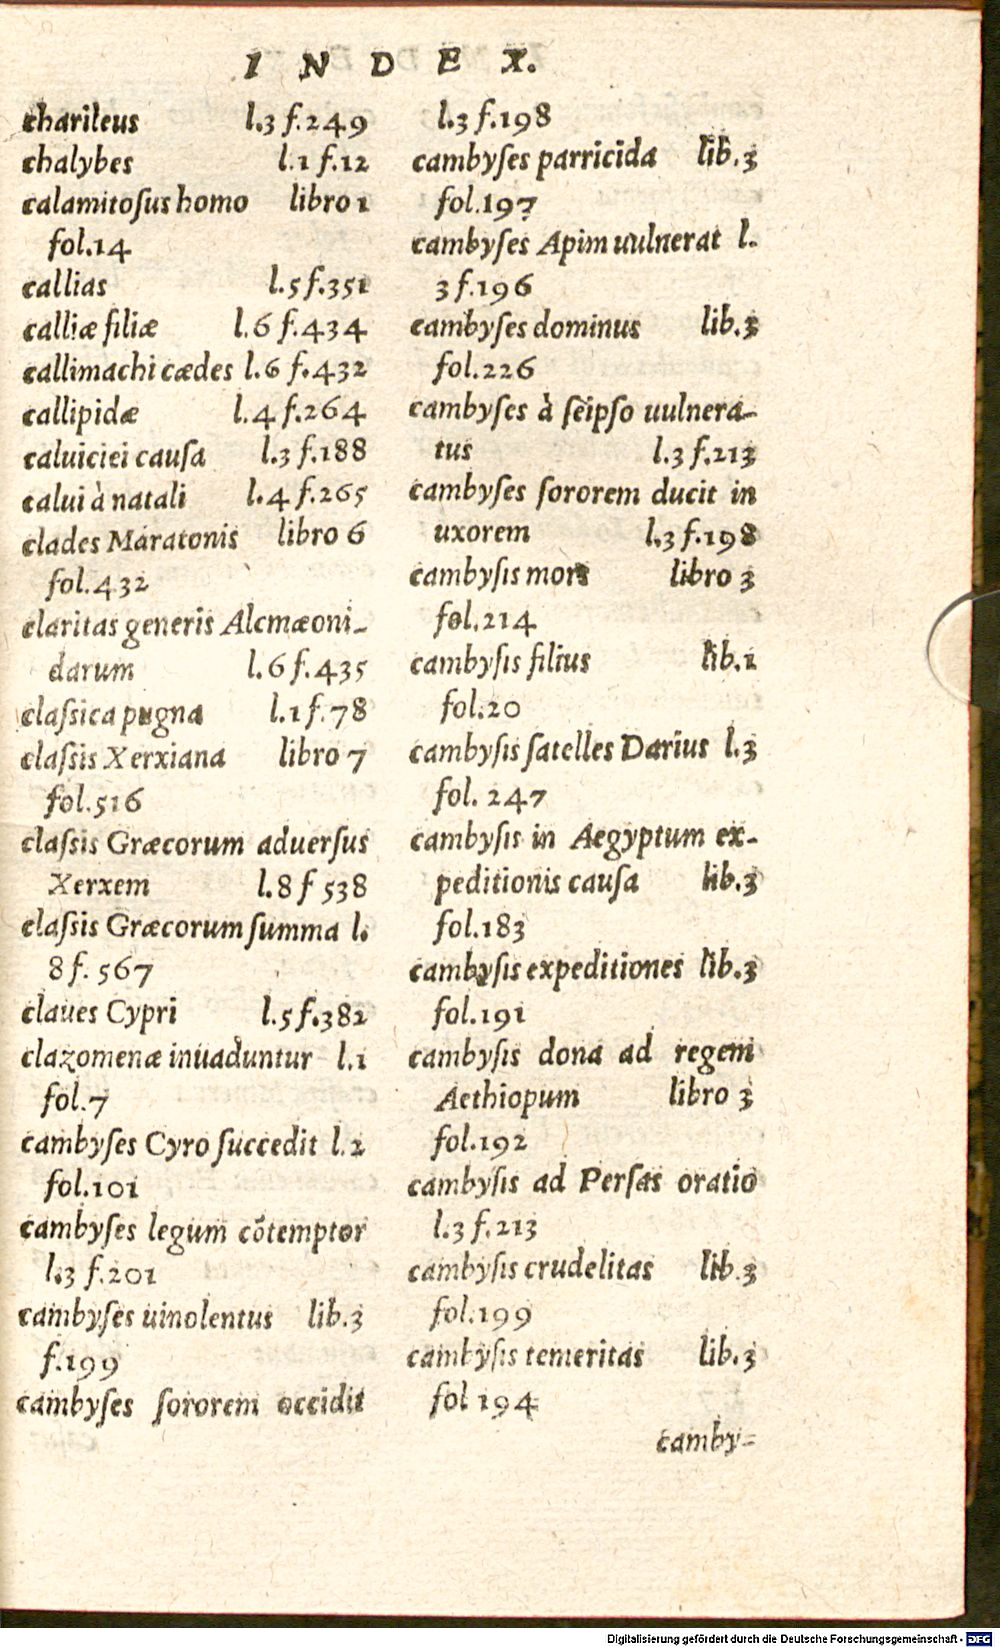 INDEX.
charileus l.3 f.249
chalybes l.1 f.12
calamitoſus homo libro 1
fol.14
callias l.5 f.351
calliæ filiæ l.6 f.434
callimachi cædes l.6 f.432
callipidæ l.4 f.264
caluiciei cauſa l.3 f.188
calui à natali l.4 f.265
clades Maratonis libro 6
fol.432
claritas generis Alcmæoni-
darum l.6 f.435
claſsica pugna l.1 f.78
claſsis Xerxiana libro 7
fol.516
claſsis Græcorum aduerſus
Xerxem l.8 f 538
claſsis Græcorum ſumma l.
8 f. 567
claues Cypri l.5 f.382
clazomenæ inuaduntur l.1
fol.7
cambyſes Cyro ſuccedit l.2
fol.101
cambyſes legum cõtemptor
l.3 f.201
cambyſes uinolentus lib.3
f.199
cambyſes ſororem occidit
l.3 f.198
cambyſes parricida lib.3
fol.197
cambyſes Apim uulnerat l.
3 f.196
cambyſes dominus lib.3
fol.226
cambyſes à ſeipſo uulnera-
tus l.3 f.213
cambyſes ſororem ducit in
uxorem l.3 f.198
cambyſis mors libro 3
fol.214
cambyſis filius lib.1
fol.20
cambyſis ſatelles Darius l.3
fol. 247
cambyſis in Aegyptum ex-
peditionis cauſa lib.3
fol.183
cambyſis expeditiones lib.3
fol.191
cambyſis dona ad regem
Aethiopum libro 3
fol.192
cambyſis ad Perſas oratio
l.3 f.213
cambyſis crudelitas lib.3
fol.199
cambyſis temeritas lib.3
fol 194
camby-
Digitalisierung gefördert durch die Deutsche Forschungsgemeinschaft - DFG